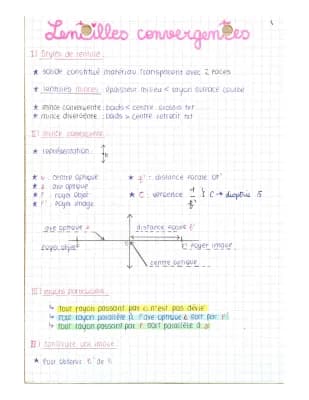 Lentilles convergentes
I) Styles de lentille :
★ solide constitué matériau transparent avec 2 faces
★ lentilles minces : épaisseur milieu < rayon surface courbe
★ mince convergente : bords < centre
★ mince divergente : bords > centre
II) mince convergente
★ représentation :
★ O : centre optique
★ f' : distance focale OF'
★ Δ : axe optique
★ F : foyer objet
★ C : vergence 1/f' } C → dioptrie δ
★ F' : foyer image
axe optique Δ
distance focale f'
foyer objet
foyer image
centre optique
III) rayons particuliers
↳ tout rayon passant par O n'est pas dévié
↳ tout rayon parallèle à l'axe optique Δ sort par F'
↳ tout rayon passant par F sort parallèle à Δ
construire une image
★ Pour obtenir B' de B